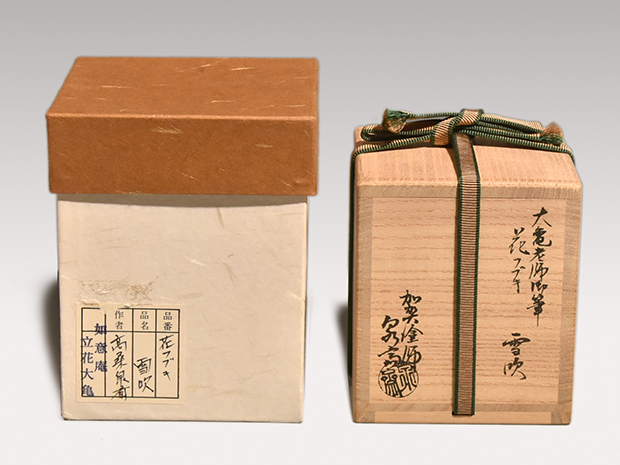 品番
花フブキ
品名
雪吹
作者
如意庵
立花大亀
大亀老師御筆
花フブキ
雪吹
加賀塗師